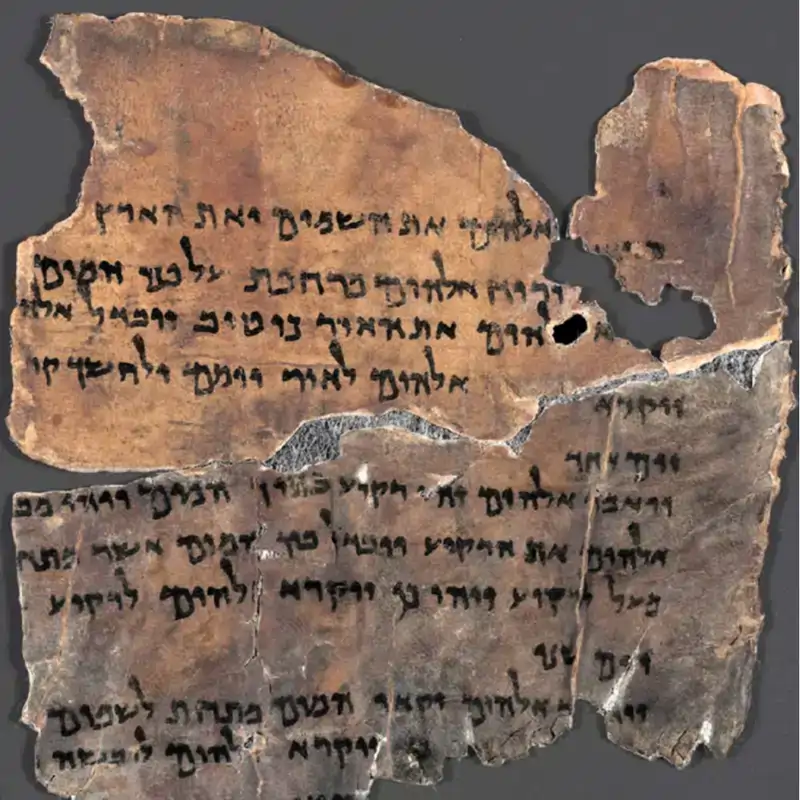 אלהים את השמים ואת הארץ
ורוח אלהים מרחפת על פני המים
אלהים את האור כי טוב ויבדל אלה
אלהים לאור יומם ולחשך קר
ויקרא
יום אחד
ויאמר אלהים יהי רקיע בתוך המים ויהי מב
אלהים את הרקיע ויבדל בין המים אשר מתח
מעל לרקיע ויהי כן ויקרא אלהים לרקיע
יום שני
אלהים יקאו המים מתחת לשמים
כן ויקרא אלהים ליבשה